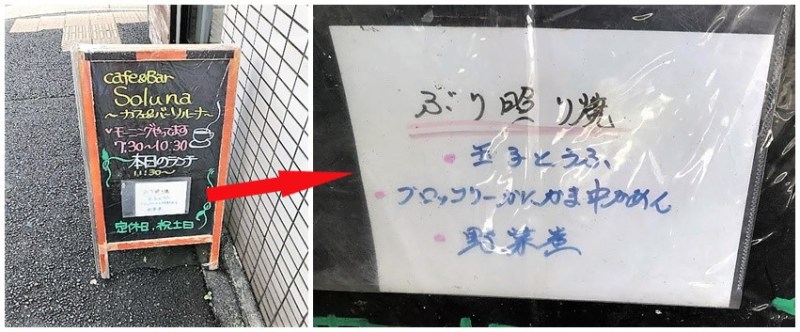 cafe&Bar
Soluna
～カフェ&バーソルーナ～
モーニングやってます
7:30～10:30
本日のランチ
11:30～
定休日.祝土日
ぶり照り焼
・玉子とうふ
・ブロッコリーかにかま中かめん
・野菜煮